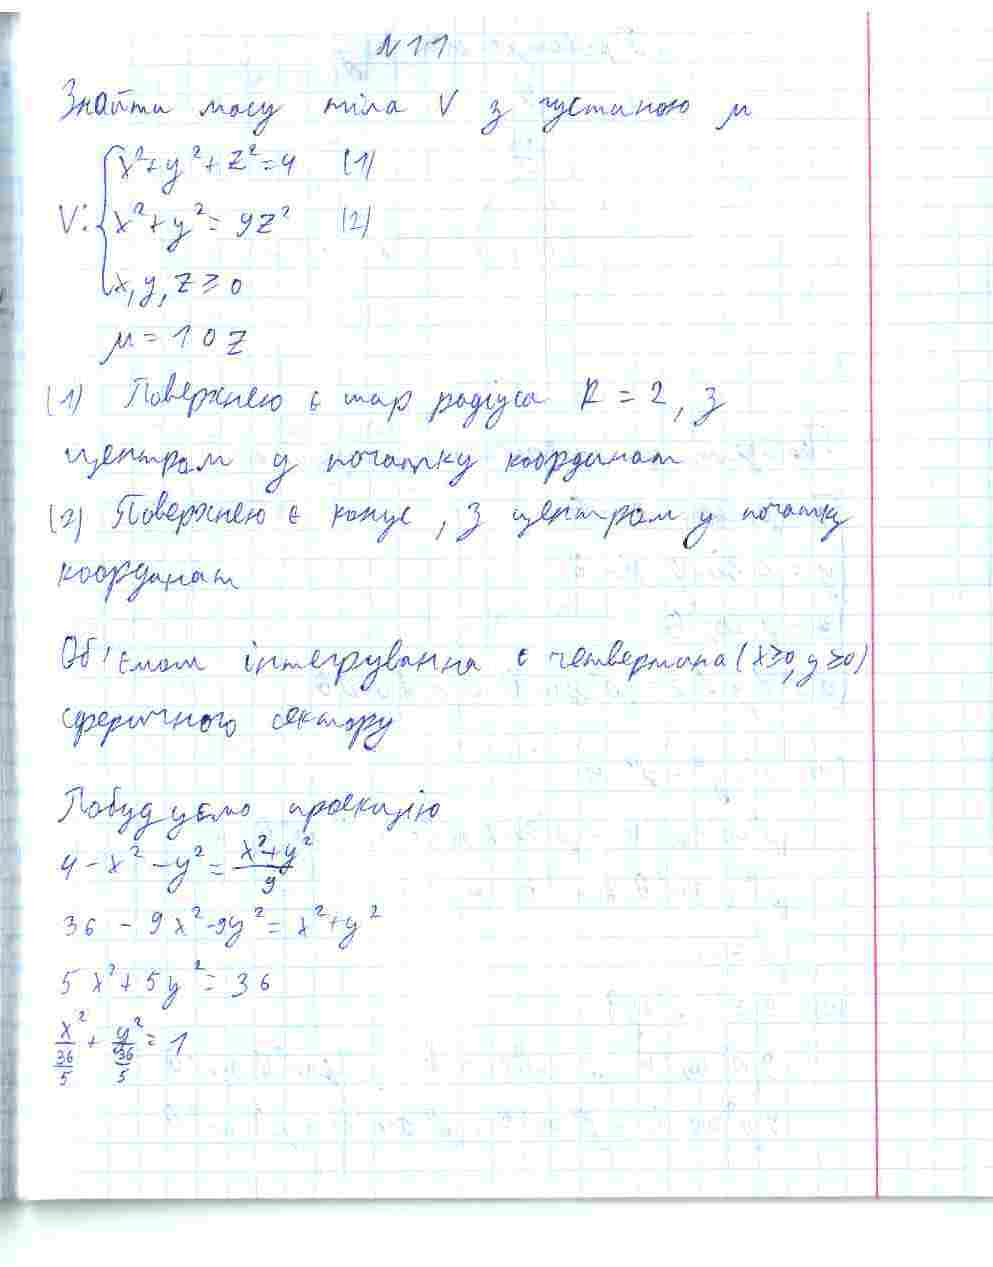 N 11
Знайти масу тіла V з густиною μ
V: { x² + y² + z² = 4 (1)
x² + y² = 9z² (2)
x, y, z ≥ 0
μ = 10z
(1) Поверхнею є шар радіуса R = 2, з
центром у початку координат
(2) Поверхнею є конус, з центром у початку
координат
Об'ємом інтегрування є четвертина (x≥0, y≥0)
сферичного сектору
Побудуємо проекцію
4 - x² - y² = (x² + y²)/9
36 - 9x² - 9y² = x² + y²
5x² + 5y² = 36
x²/(36/5) + y²/(36/5) = 1